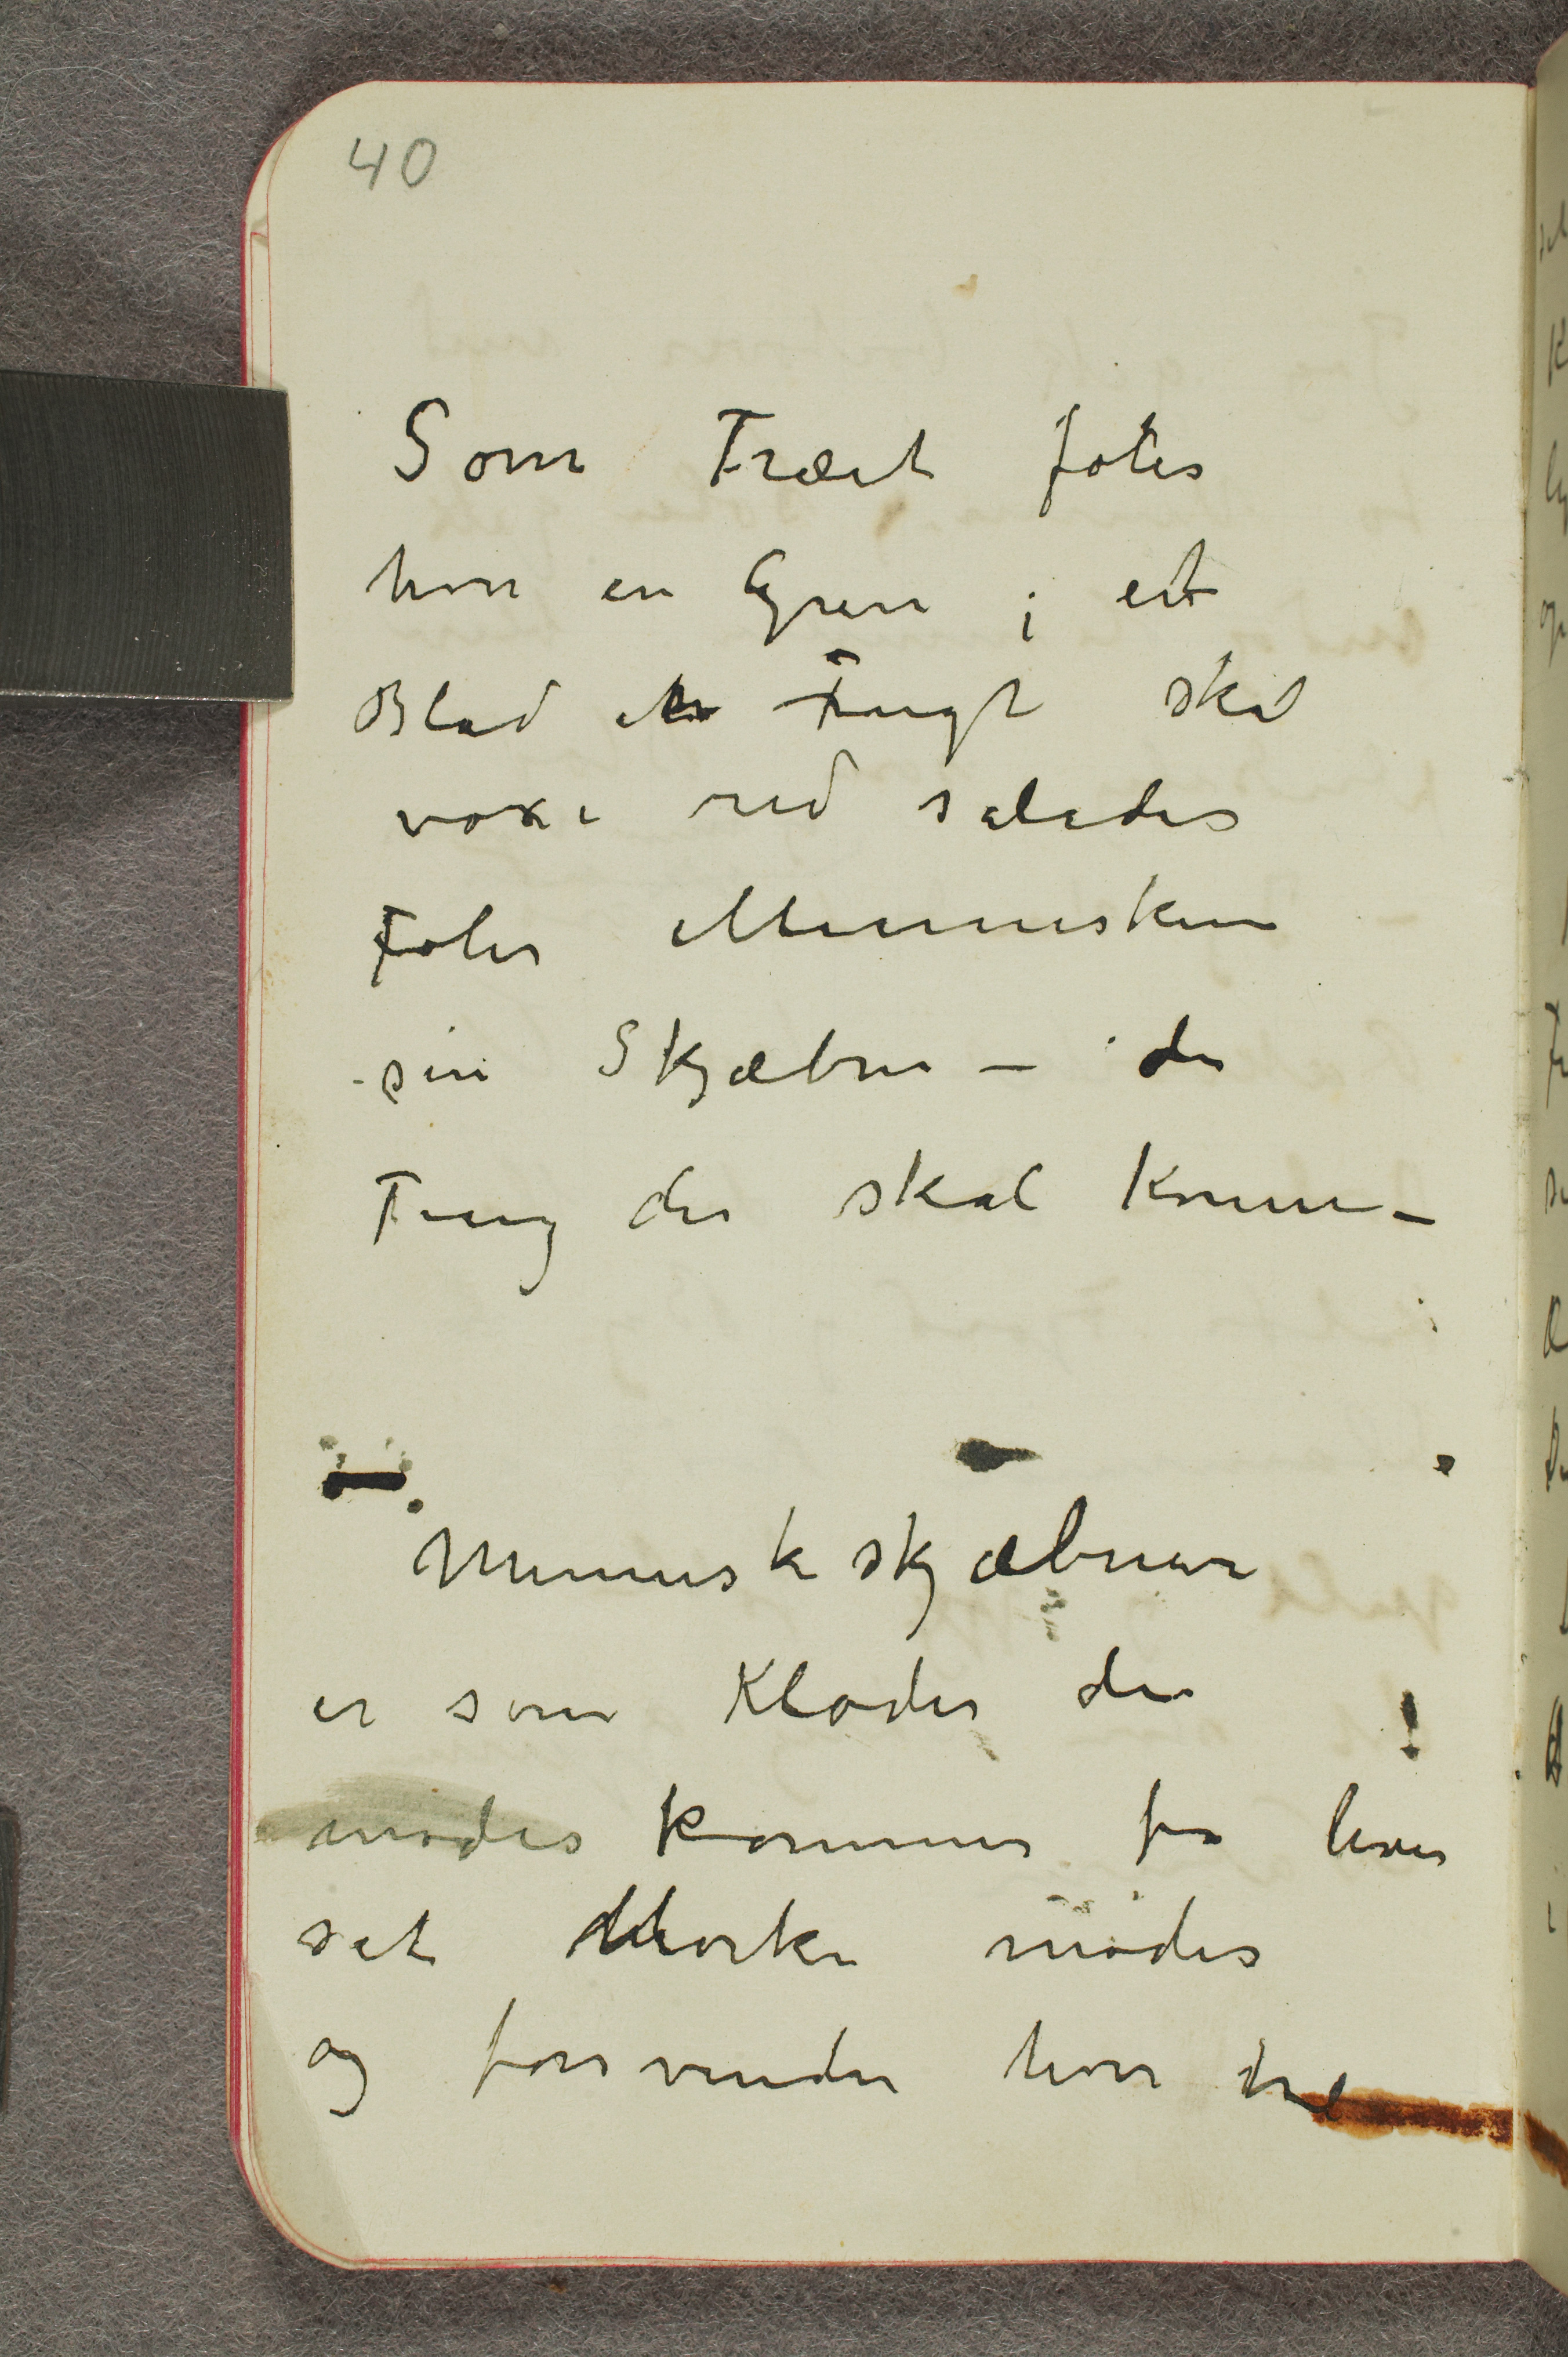 40
Som Træet føler
hvor en Gren ; et
Blad en Frugt skal
voxe ud således
føler Mennesken
sin Skjæbne – de
Ting der skal komme –
–
Menneskeskjæbner
er som Kloder der
mødes kommer fra hver
sit Mørke mødes
og forsvinder hver til